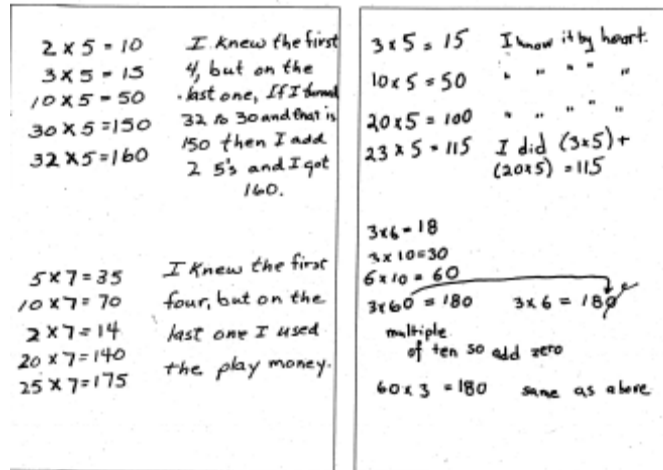 2 x 5 = 10
3 x 5 = 15
10 x 5 = 50
30 x 5 = 150
32 x 5 = 160
I knew the first
4, but on the
last one, If I turned
32 to 30 and that is
150 then I add
2 5's and I got
160.
5 x 7 = 35
10 x 7 = 70
2 x 7 = 14
20 x 7 = 140
25 x 7 = 175
I knew the first
four, but on the
last one I used
the play money.
3 x 5 = 15 I know it by heart.
10 x 5 = 50 " " " " "
20 x 5 = 100 " " " " "
23 x 5 = 115 I did (3x5) +
(20x5) = 115
3x6 = 18
3 x 10 = 30
6 x 10 = 60
3x60 = 180 3 x 6 = 180
multiple
of ten so add zero
60 x 3 = 180 same as above